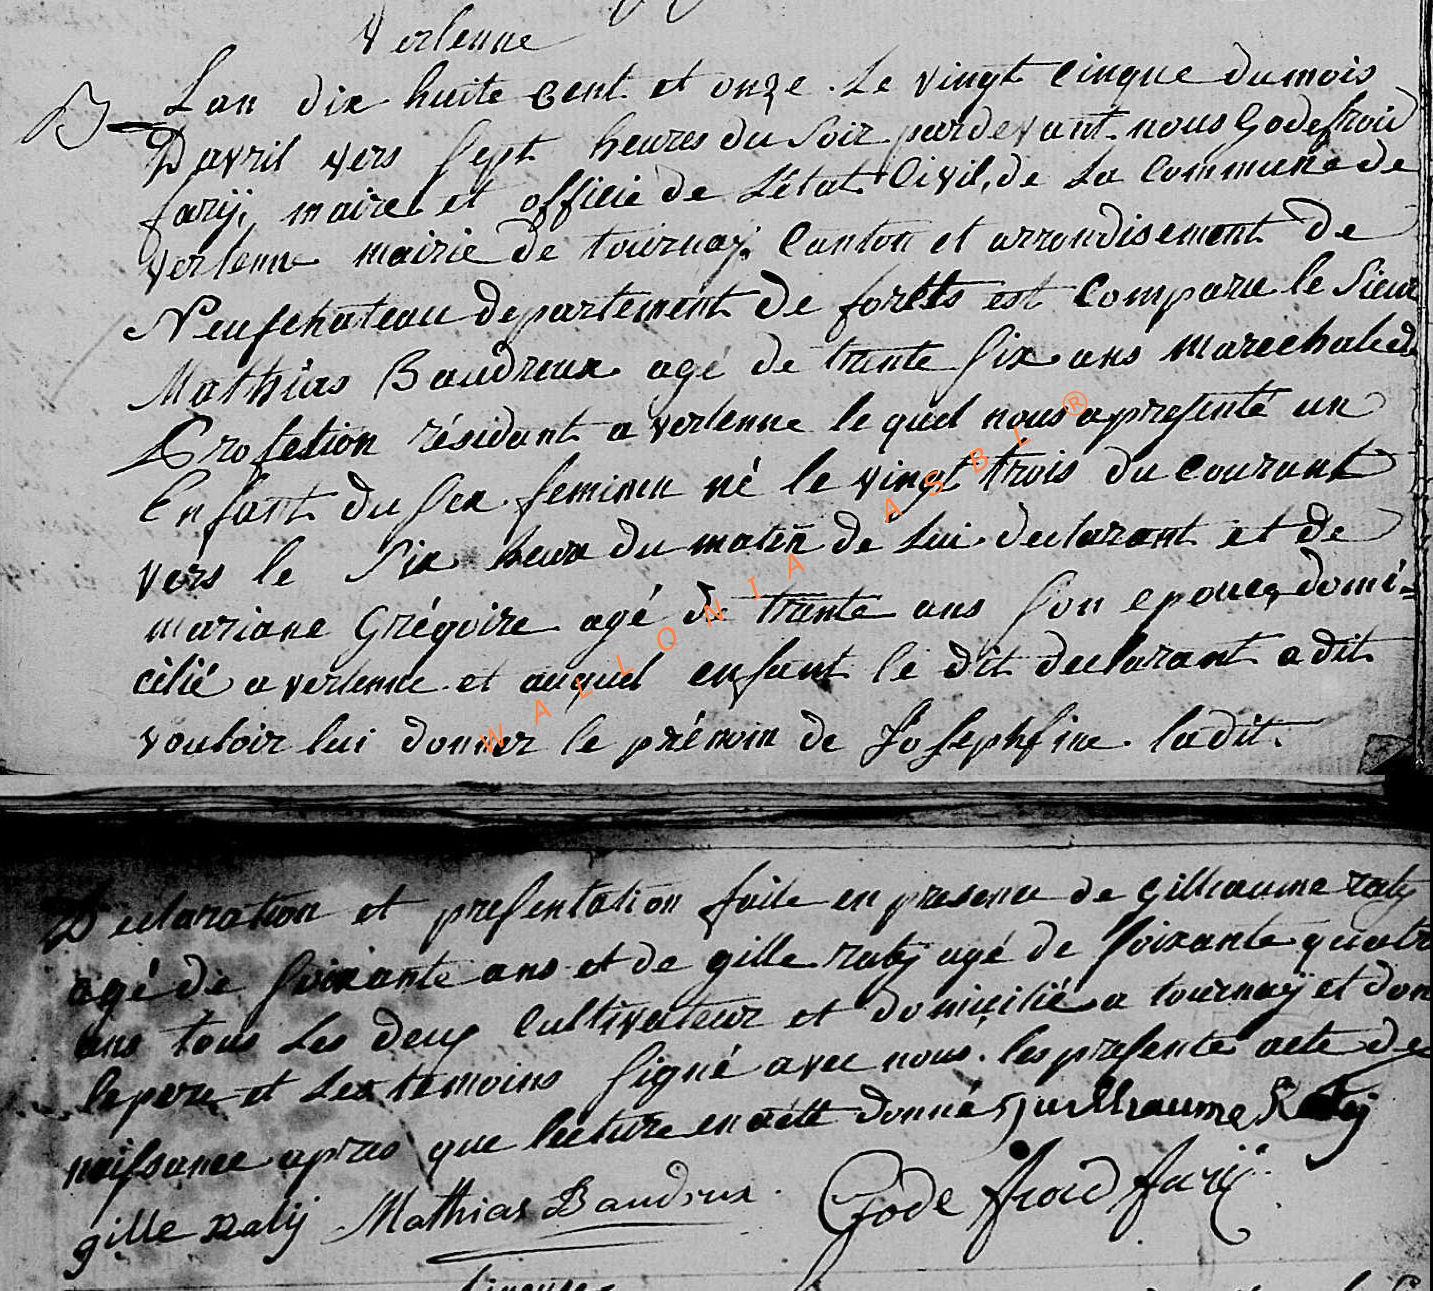 Verlenne
B Lan dix huite Cent et onze. Le vingt Cinque du mois
Davril vers Sept heures du Soir pardevant nous Godefroid
farÿ, maire et officié de L'état Civil, de La Commune de
verlenne mairie de tournaÿ. Canton et arrondisement de
Neufchateau departement de forêts est Comparu le Sieur
Mathias Baudreux agé de trente Six ans marechale de
Profetion résidant a verlenne le quel nous a presenté un
Enfant du Sex feminin né le vingt trois du Courant
vers le Six heur du matin de Lui declarant et de
mariane Grégoire agé de trente ans Son epouce, domi=
cilié a verlenne et auquel enfant le dit declarant a dit
vouloir lui donner le prénom de Josephfine ladit.
WALLONIA ASBL ®
Declaration et presentation faite en presence de Gilliaume raty
agé de Soixante ans et de gille raty agé de Soixante quatre
ans tous Les deux Cultivateur et domicilié a tournaÿ et don
le pere et Les temoins Signé avec nous. les presente acte de
naissance apres que lecture en a été donné guilliaume Raty
gille Ratÿ Mathias Baudrux. Gode froid farÿ